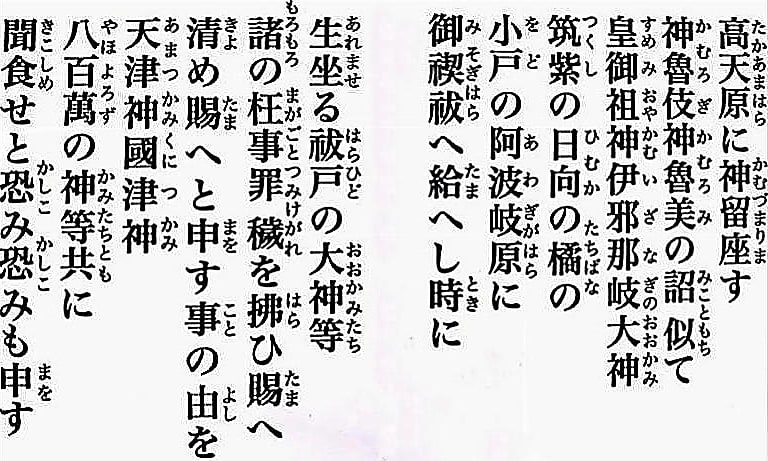 高天原に神留座す
神魯伎神魯美の詔似て
皇御祖神伊邪那岐大神
筑紫の日向の橘の
小戸の阿波岐原に
御禊祓へ給へし時に
生坐る祓戸の大神等
諸の枉事罪穢を拂ひ賜へ
清め賜へと申す事の由を
天津神國津神
八百萬の神等共に
聞食せと恐み恐みも申す